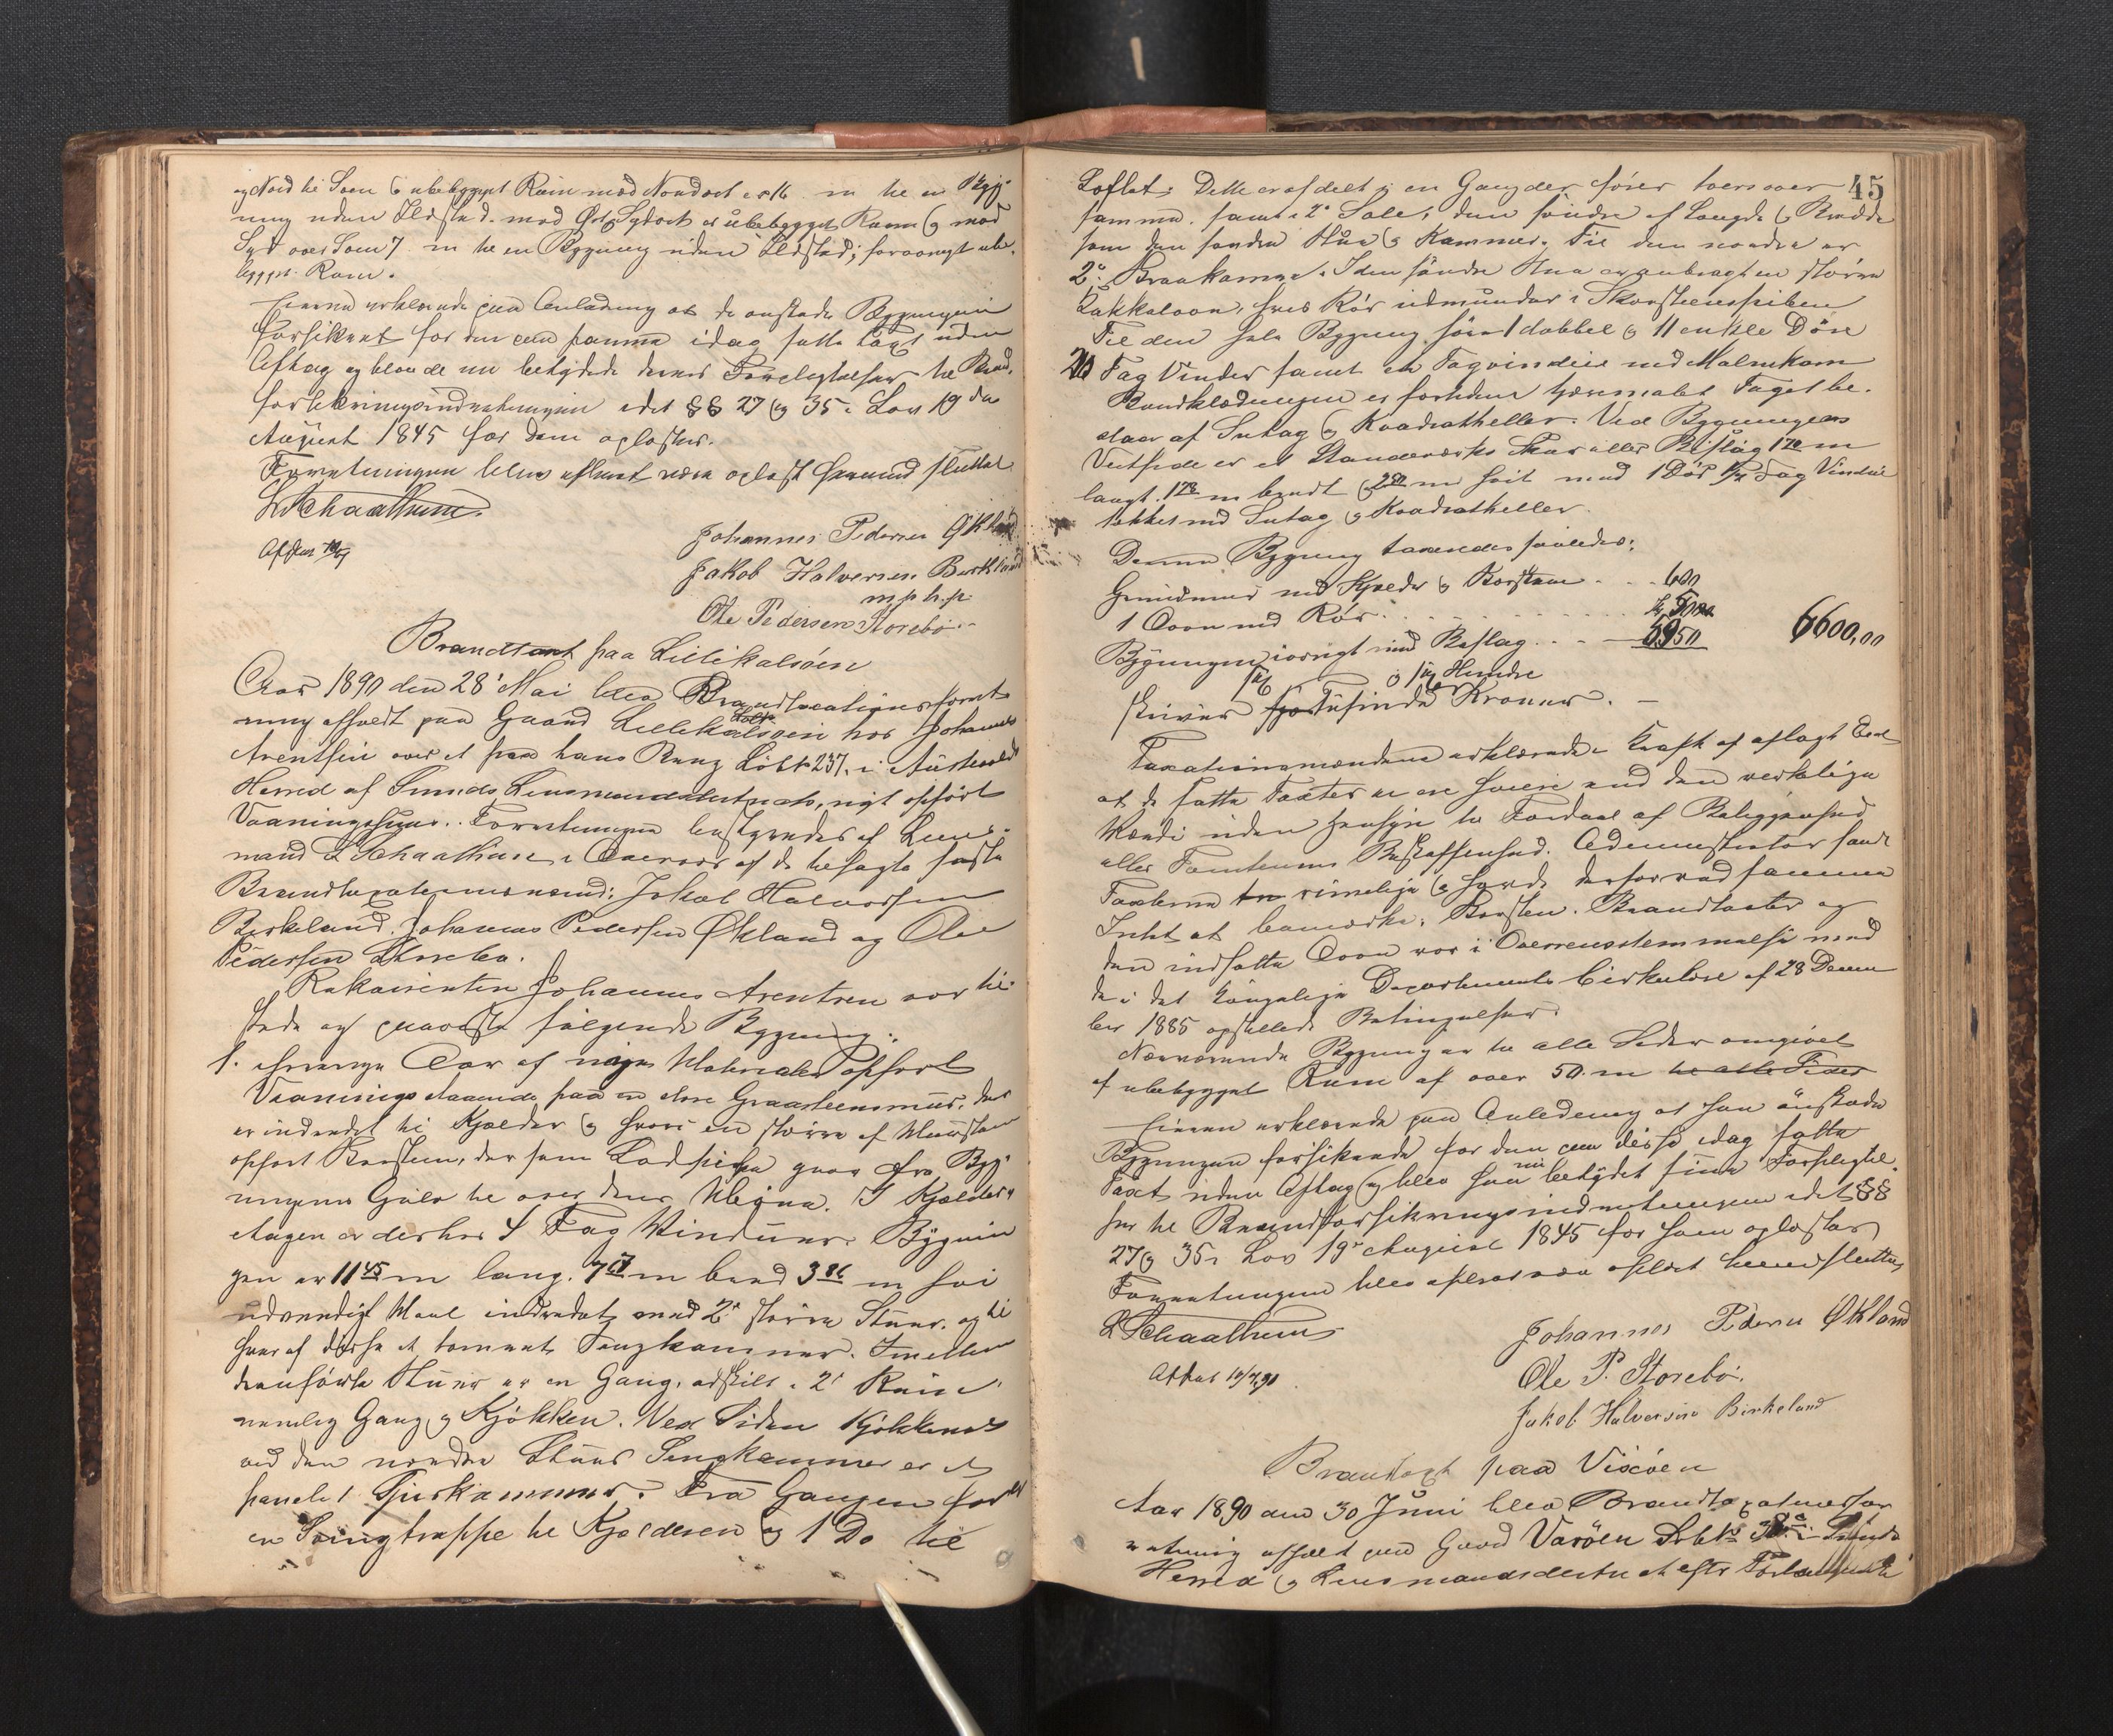 og Nord til Søen & ubebygget Rum mod Nordost c 16 m til en Byg-
ning uden Ildsted. mod Øst & Sydost er ubebygget Rum & mod
Syd over Søen 7 m til en Bygning uden Ildsted; forøvrigt ube-
bygget Rum.
Eierne erklærede paa Anledning at de ønskede Bygningen
forsikret for den paa samme idag satte Taxt uden
Aftag og blev de nu betydede deres Forpligtelser til Brand-
forsikringsindretningen idet §§ 27 og 35 i Lov 19 de
August 1845 for dem oplæstes.
Forretningen blev efterat være oplæst hermed sluttet
L Schaathun.
Johannes Pedersen Økland
Jakob Halversen Birkeland
m. p. h. p.
Ole Pedersen Storebø.
Brandtaxt paa Lillekalsøen
Aar 1890 den 28' Mai blev Brandtaxationsforret-
ning afholdt paa Gaard Lillekalsøen hos Johannes
Arentsen over et paa hans Brug Løbr 237, i Austevolds
Herred af Sunds Lensmandsdistrict, nyt opført
Vaaningshuus. Forretningen bestyredes af Lens-
mand L Schaathun i Overvær af de besagte faste
Brandtaxationsmænd: Jakob Halversen
Birkeland, Johannes Pedersen Økland og Ole
Pedersen Storebø.
Rekvirenten Johannes Arentsen var til-
stede og paaviste følgende Bygning:
1. iforrige Aar af nye Materialer opført
Vaanings staaende paa en større Graasteensmuur, der
er indredet til Kjelder & hvori en større af Muursteen
opført Korsteen, der som Lodpibe gaar fra Byg-
ningens Gulv til over dens Møna. I Kjelder-
etagen er derhos 4 Fag Vinduer. Bygnin
gen er 11 45 m lang, 7 m bred 3 86 m høi
udvendigt Maal indredet med 2' større Stuer, og til
hver af disse et tømret Sengkammer. Imellem
denførste Stuer er en Gang, adskilt i 2' Rum,
nemlig Gang & Kjøkken. Ved Siden Kjøkkenet
ved den nordre Stues Sengkammer er et
panelet Spiskammer. Fra Gangen fører
en Svingtrappe til Kjelderen & 1 Do til
45
Loftet; Dette er afdelt i en Gang der fører tversover
samme, samt i 2' Sale, den søndre af Længde & Bredde
som den søndre Stue & Kammer. Til den nordre er
2' Kraakamre. I den søndre Stue er anbragt en større
Kakkelovn, hvis Rør udmunder i Skorsteenspiben
Til den hele Bygning hører 1 dobbel & 11 enkle Døre
20 Fag Vinder samt et Tagvindue med Malmkarm
Bordklædningen er forhden hjemmalet Taget be-
staar af Sutag & Kvadratheller. Ved Bygningens
Vestside er et Standværks Skur eller Bislag 1 78 m
langt 1 78 m bredt & 2 50 m høit med 1 Dør 1/2 Fag Vindue
tækket med Sutag & Kvadratheller.
Denne Bygning taxeredes saaledes:
Grundmur med Kjelder & Korsteen . . . 600
1 Ovn med Rør . . . 50
Bygningen iøvrigt med Bislag . . . 5950 6600,00
sex & sex Hundre
skriver Tusinde Kroner. —
Taxationsmændene erklærede i Kraft af aflagt Eed
at de satte Taxter ei ere høiere end den verkelige
Værdi uden Hensyn til Fordeel af Beliggenhed
eller Tomtens Beskaffenhed. Administrator fandt
Taxterne rimelige & havde derfor ved samme
Intet at bemærke. Korsten. Brandtaxter og
den indsatte Ovn var i Overensstemmelse med
de i det kongelige Departements Cirkulære af 28 Decem
ber 1885 opstillede Betingelser.
Nærværende Bygning er til alle Sider omgivet
af ubebygget Rum af over 50 m til alle Sider
Eieren erklærede paa Anledning at han ønskede
Bygningen forsikrede for den paa disse idag satte
Taxt uden Aftag & blev ham nu betydet sine Forpligtel-
ser til Brandforsikringsindretningen idet §§
27 & 35 i Lov 19' August 1845 for ham oplæstes
Forretningen blev efterat være oplæst hermed sluttet
L Schaathun
Johannes Pedersen Økland
Ole P. Storebø.
Jakob Halversen Birkeland
Brandtaxt paa Vixøen
Aar 1890 den 30 Juni blev Brandtaxationsfor
retning afholdt paa Gaard Varøen i Sunds
Herred & Lensmandsdistrict efter Forlangende